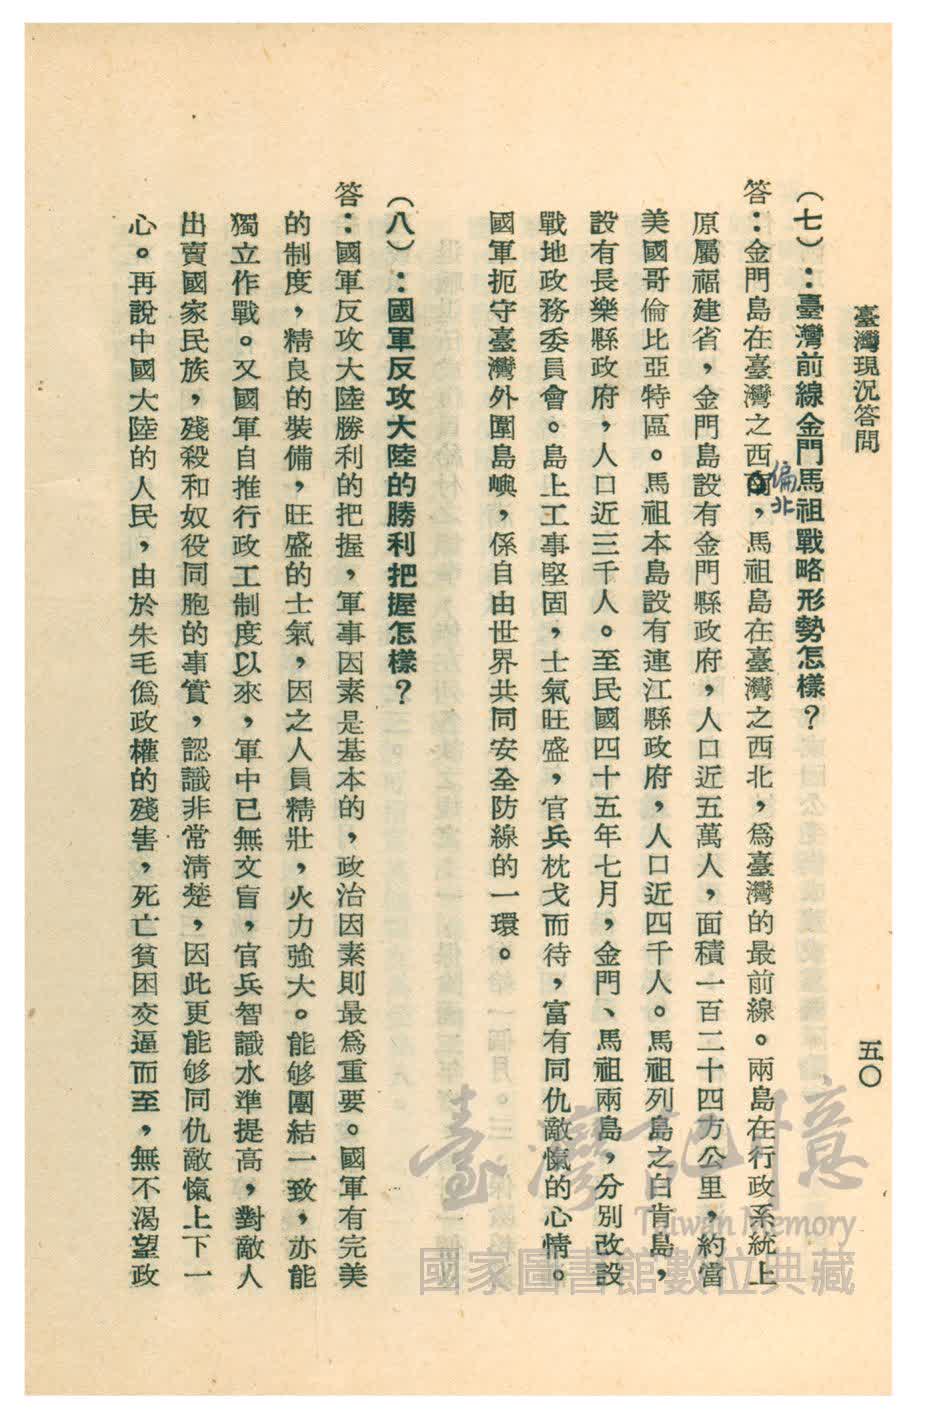 臺灣現況答問
五〇
（七）：臺灣前線金門馬祖戰略形勢怎樣？
答：金門島在臺灣之西南，馬祖島在臺灣之西北，爲臺灣的最前線。兩島在行政系統上
偏北
原屬福建省，金門島設有金門縣政府，人口近五萬人，面積一百二十四方公里，約當
美國哥倫比亞特區。馬祖本島設有連江縣政府，人口近四千人。馬祖列島之白肯島，
設有長樂縣政府，人口近三千人。至民國四十五年七月，金門、馬祖兩島，分別改設
戰地政務委員會。島上工事堅固，士氣旺盛，官兵枕戈而待，富有同仇敵愾的心情。
國軍扼守臺灣外圍島嶼，係自由世界共同安全防線的一環。
（八）：國軍反攻大陸的勝利把握怎樣？
答：國軍反攻大陸勝利的把握，軍事因素是基本的，政治因素則最爲重要。國軍有完美
的制度，精良的裝備，旺盛的士氣，因之人員精壯，火力強大。能够團結一致，亦能
獨立作戰。又國軍自推行政工制度以來，軍中已無文盲，官兵智識水準提高，對敵人
出賣國家民族，殘殺和奴役同胞的事實，認識非常清楚，因此更能够同仇敵愾上下一
心。再說中國大陸的人民，由於朱毛僞政權的殘害，死亡貧困交逼而至，無不渴望政
臺灣記憶
Taiwan Memory
國家圖書館數位典藏